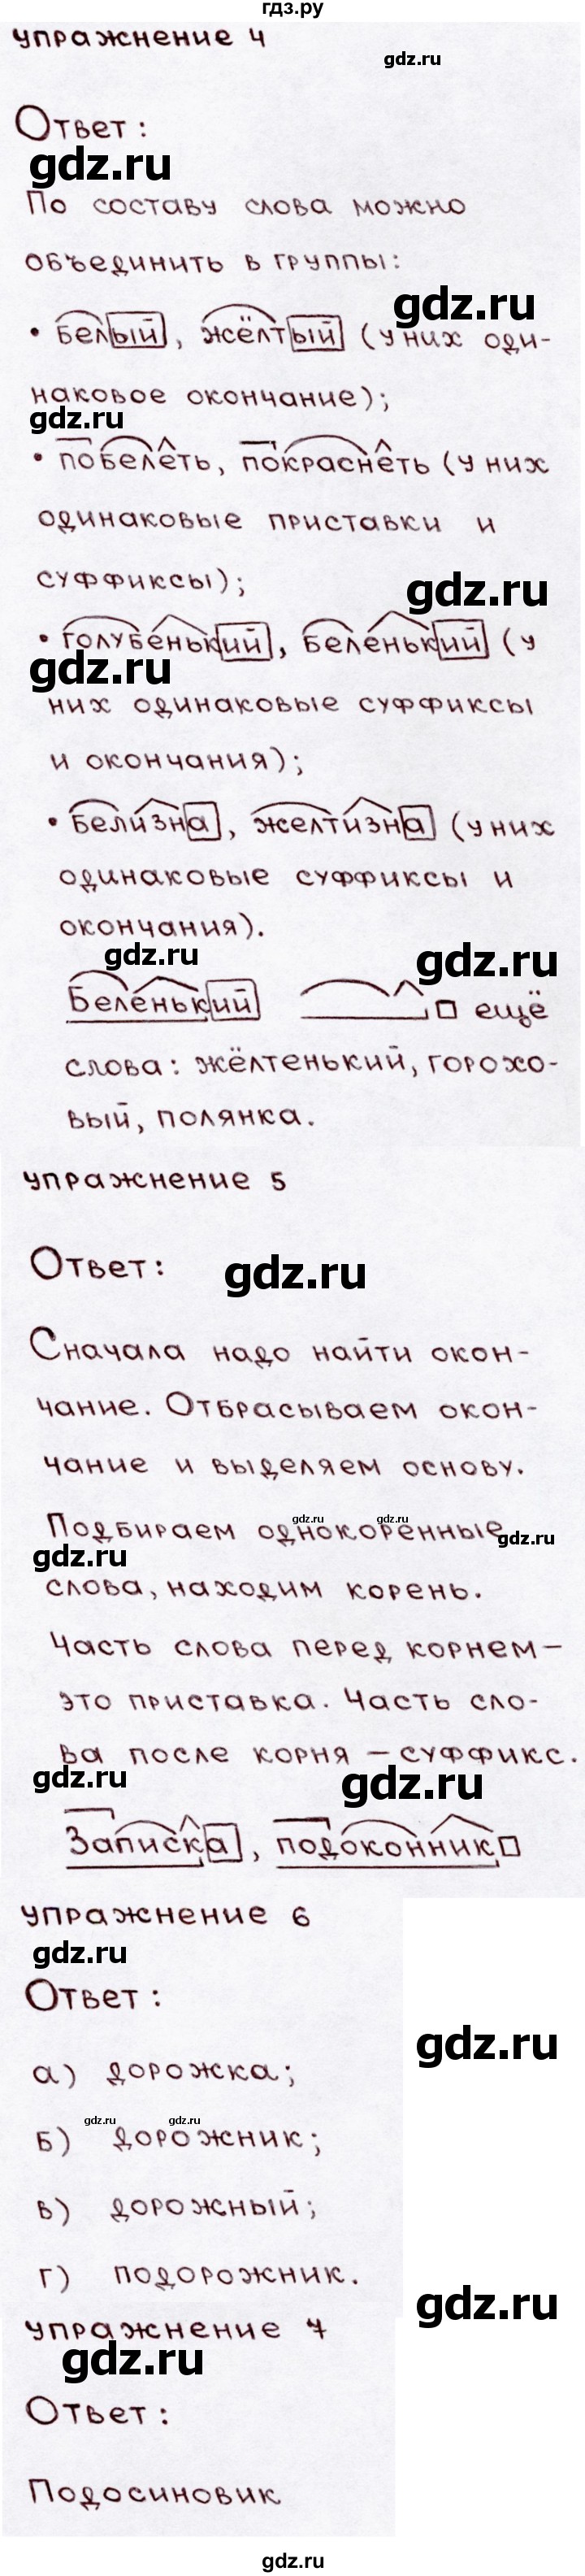 гдз.ру
упражнение 4
gdz.ru
Ответ:
gdz.ru
По составу слова можно
объединить в группы:
gdz.ru
• белый, жёлтый (у них оди-
наковое окончание);
gdz.ru
• побелеть, покраснеть (у них
одинаковые приставки и
суффиксы);
gdz.ru
• голубенький, беленький (у
gdz.ru
них одинаковые суффиксы
и окончания);
• белизна, желтизна (у них
одинаковые суффиксы и
окончания).
gdz.ru gdz.ru
Беленький ещё
слова: жёлтенький, горохо-
вый, полянка.
упражнение 5
Ответ:
gdz.ru
Сначала надо найти окон-
чание. Отбрасываем окон-
чание и выделяем основу.
gdz.ru gdz.ru
Подбираем однокоренные
gdz.ru
gdz.ru
слова, находим корень.
Часть слова перед корнем —
это приставка. Часть сло-
ва после корня — суффикс.
gdz.ru gdz.ru
Записка, подоконник
упражнение 6
gdz.ru
Ответ:
gdz.ru
а) дорожка;
gdz.ru gdz.ru
б) дорожник;
в) дорожный;
г) подорожник.
gdz.ru
упражнение 7
gdz.ru
Ответ:
Подосиновик
gdz.ru